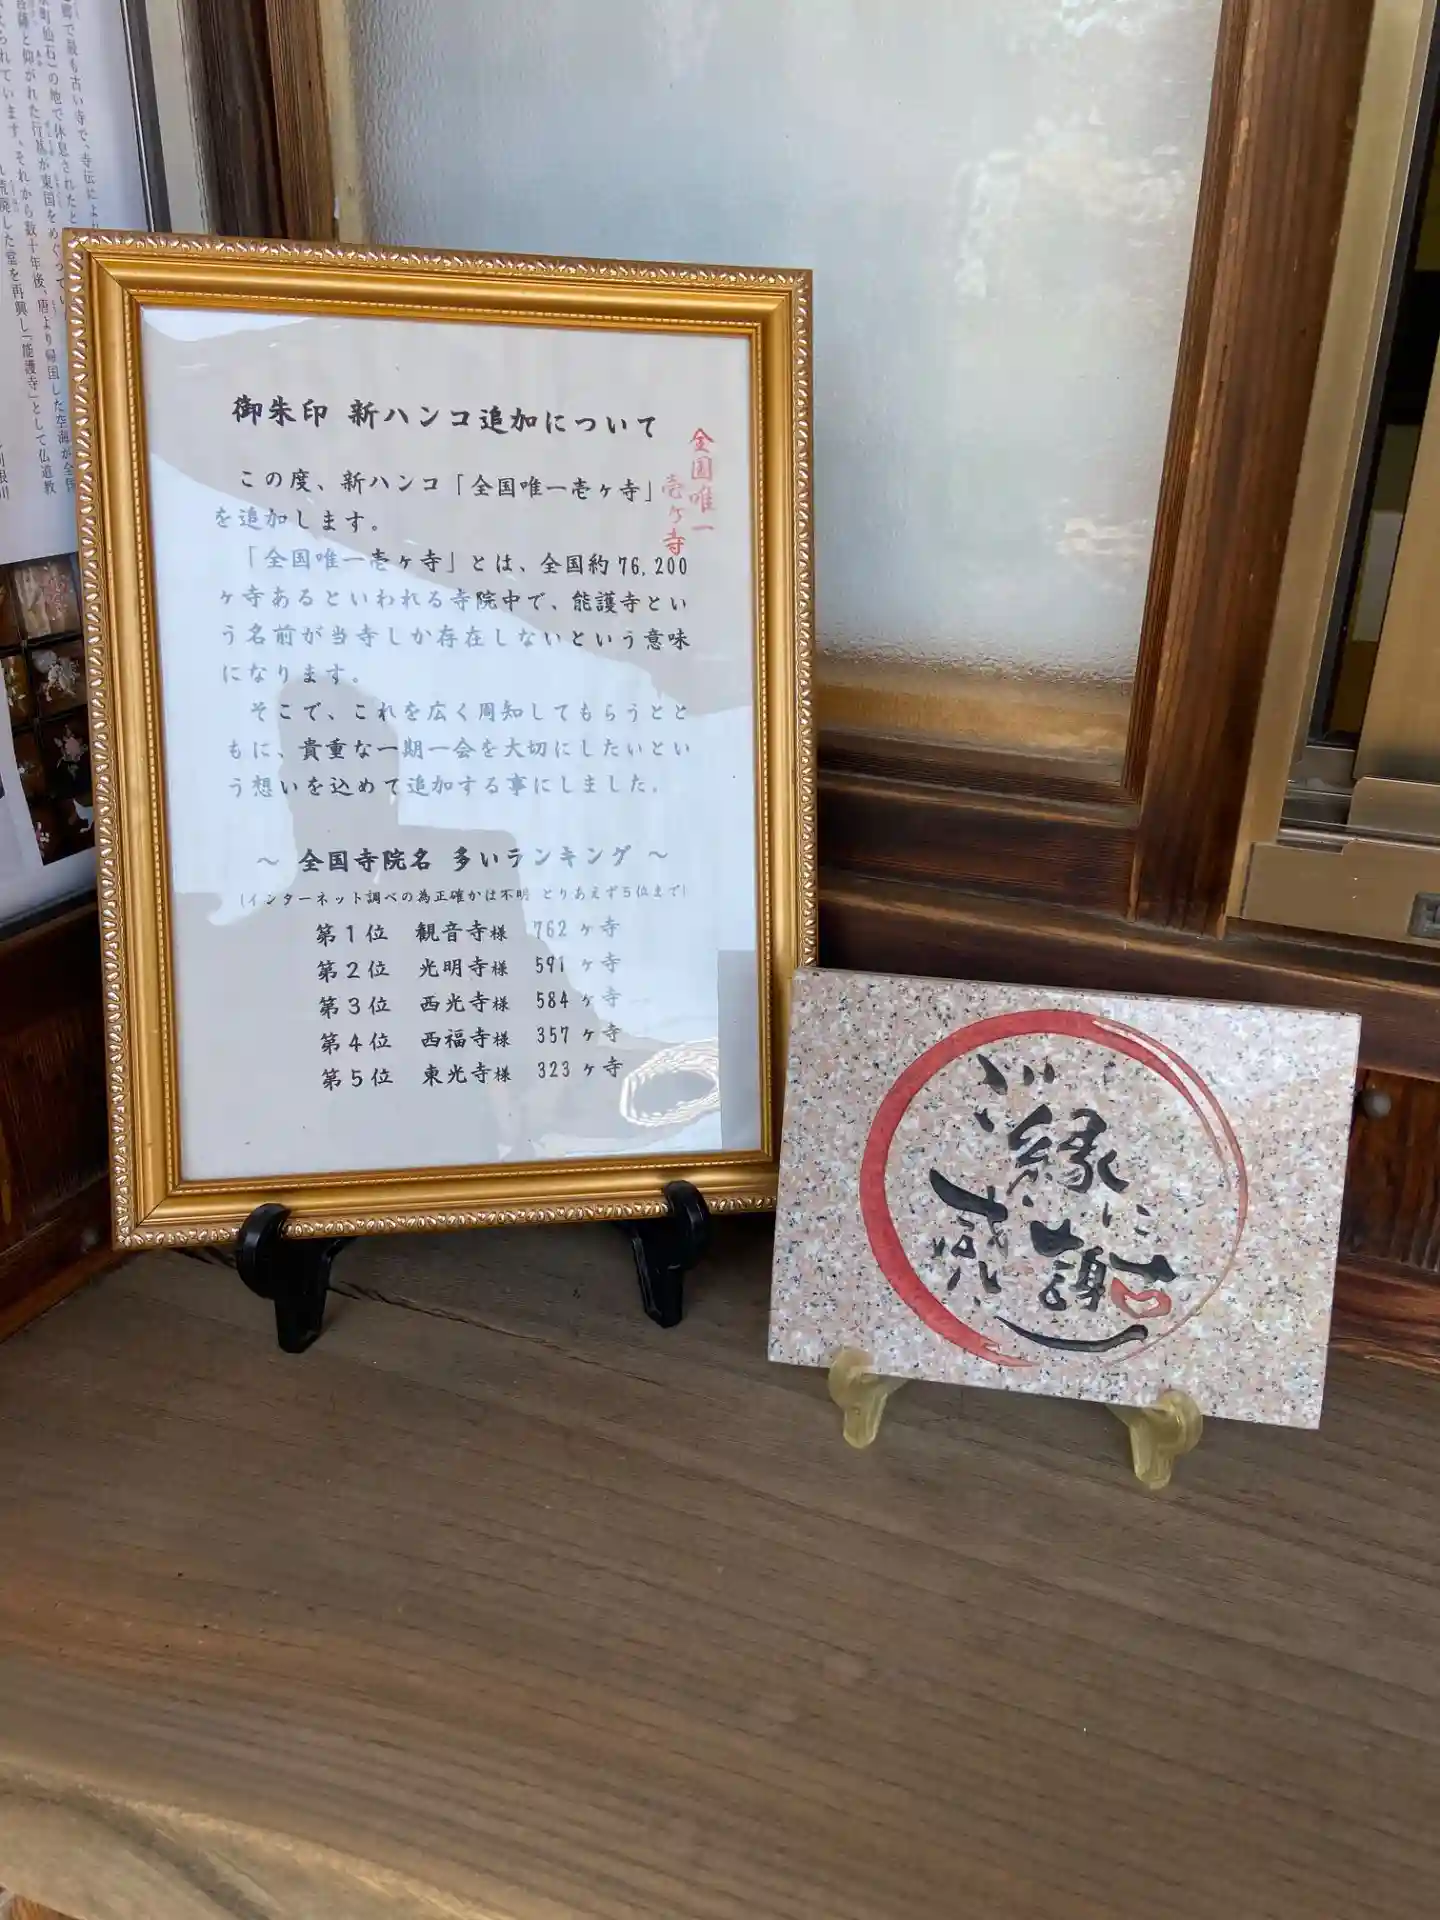 郷で最も古い寺で、寺伝によ
町仙石)の地で休息されたと
菩薩と仰がれた行基が東国をめぐってい
られています。それから数十年後、唐より帰国した空海が全
荒廃した堂を再興し「能護寺」として仏道教
利根川
御朱印 新ハンコ追加について
この度、新ハンコ「全国唯一壱ヶ寺」
を追加します。
全国唯一
壱ヶ寺
「全国唯一壱ヶ寺」とは、全国約76,200
ヶ寺あるといわれる寺院中で、能護寺とい
う名前が当寺しか存在しないという意味
になります。
そこで、これを広く周知してもらうとと
もに、貴重な一期一会を大切にしたいとい
う想いを込めて追加する事にしました。
～ 全国寺院名 多いランキング ～
(インターネット調べの為正確かは不明 とりあえず5位まで)
第1位 観音寺様 762 ヶ寺
第2位 光明寺様 591 ヶ寺
第3位 西光寺様 584 ヶ寺
第4位 西福寺様 357 ヶ寺
第5位 東光寺様 323 ヶ寺
ご縁に
感謝